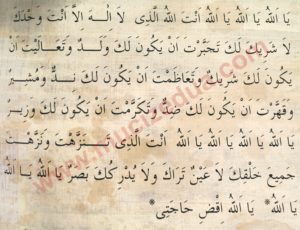 يَا اَللهُ يَا اَللهُ يَا اَللهُ اَنْتَ اللهُ الَّذِى لَا اِلٰهَ اِلَّا اَنْتَ وَحْدَكَ
لَا شَرِيكَ لَكَ تَجَبَّرْتَ اَنْ يَكُونَ لَكَ وَلَدٌ وَتَعَالَيْتَ اَنْ
يَكُونَ لَكَ شَرِيكٌ وَتَعَاظَمْتَ اَنْ يَكُونَ لَكَ نِدٌّ وَمُشِيرٌ
وَقَهَّرْتَ اَنْ يَكُونَ لَكَ ضِدٌّ وَتَكَرَّمْتَ اَنْ يَكُونَ لَكَ وَزِيرٌ
يَا اَللهُ يَا اَللهُ يَا اَللهُ يَا اَللهُ اَنْتَ الَّذِى تَنَزَّهْتَ وَنَزَّهْتَ
جَمِيعَ خَلْقِكَ لَا عَيْنٌ تَرَاكَ وَلَا يُدْرِكُكَ بَصَرٌ يَا اَللهُ يَا اَللهُ
يَا اَللهُ* يَا اَللهُ اِقْضِ حَاجَتِى*